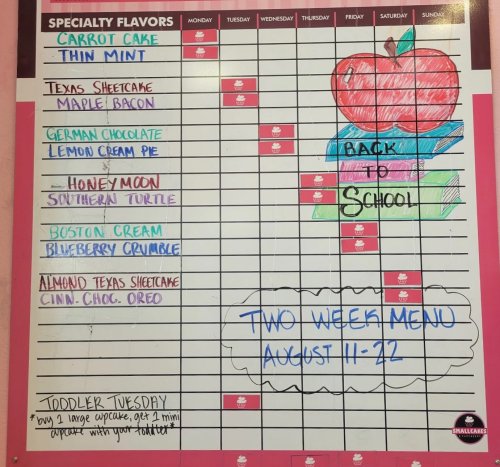 SPECIALTY FLAVORS MONDAY TUESDAY WEDNESDAY THURSDAY FRIDAY SATURDAY SUNDAY
CARROT CAKE
THIN MINT
TEXAS SHEETCAKE
MAPLE BACON
GERMAN CHOCOLATE
LEMON CREAM PIE
BACK
TO
SCHOOL
- HONEYMOON
SOUTHERN TURTLE
BOSTON CREAM
BLUEBERRY CRUMBLE
ALMOND TEXAS SHEETCAKE
CINN. CHOC. OREO
TWO WEEK MENU
AUGUST 11-22
TODDLER TUESDAY
*buy 1 large cupcake, get 1 mini
cupcake with your toddler*
SMALLCAKES